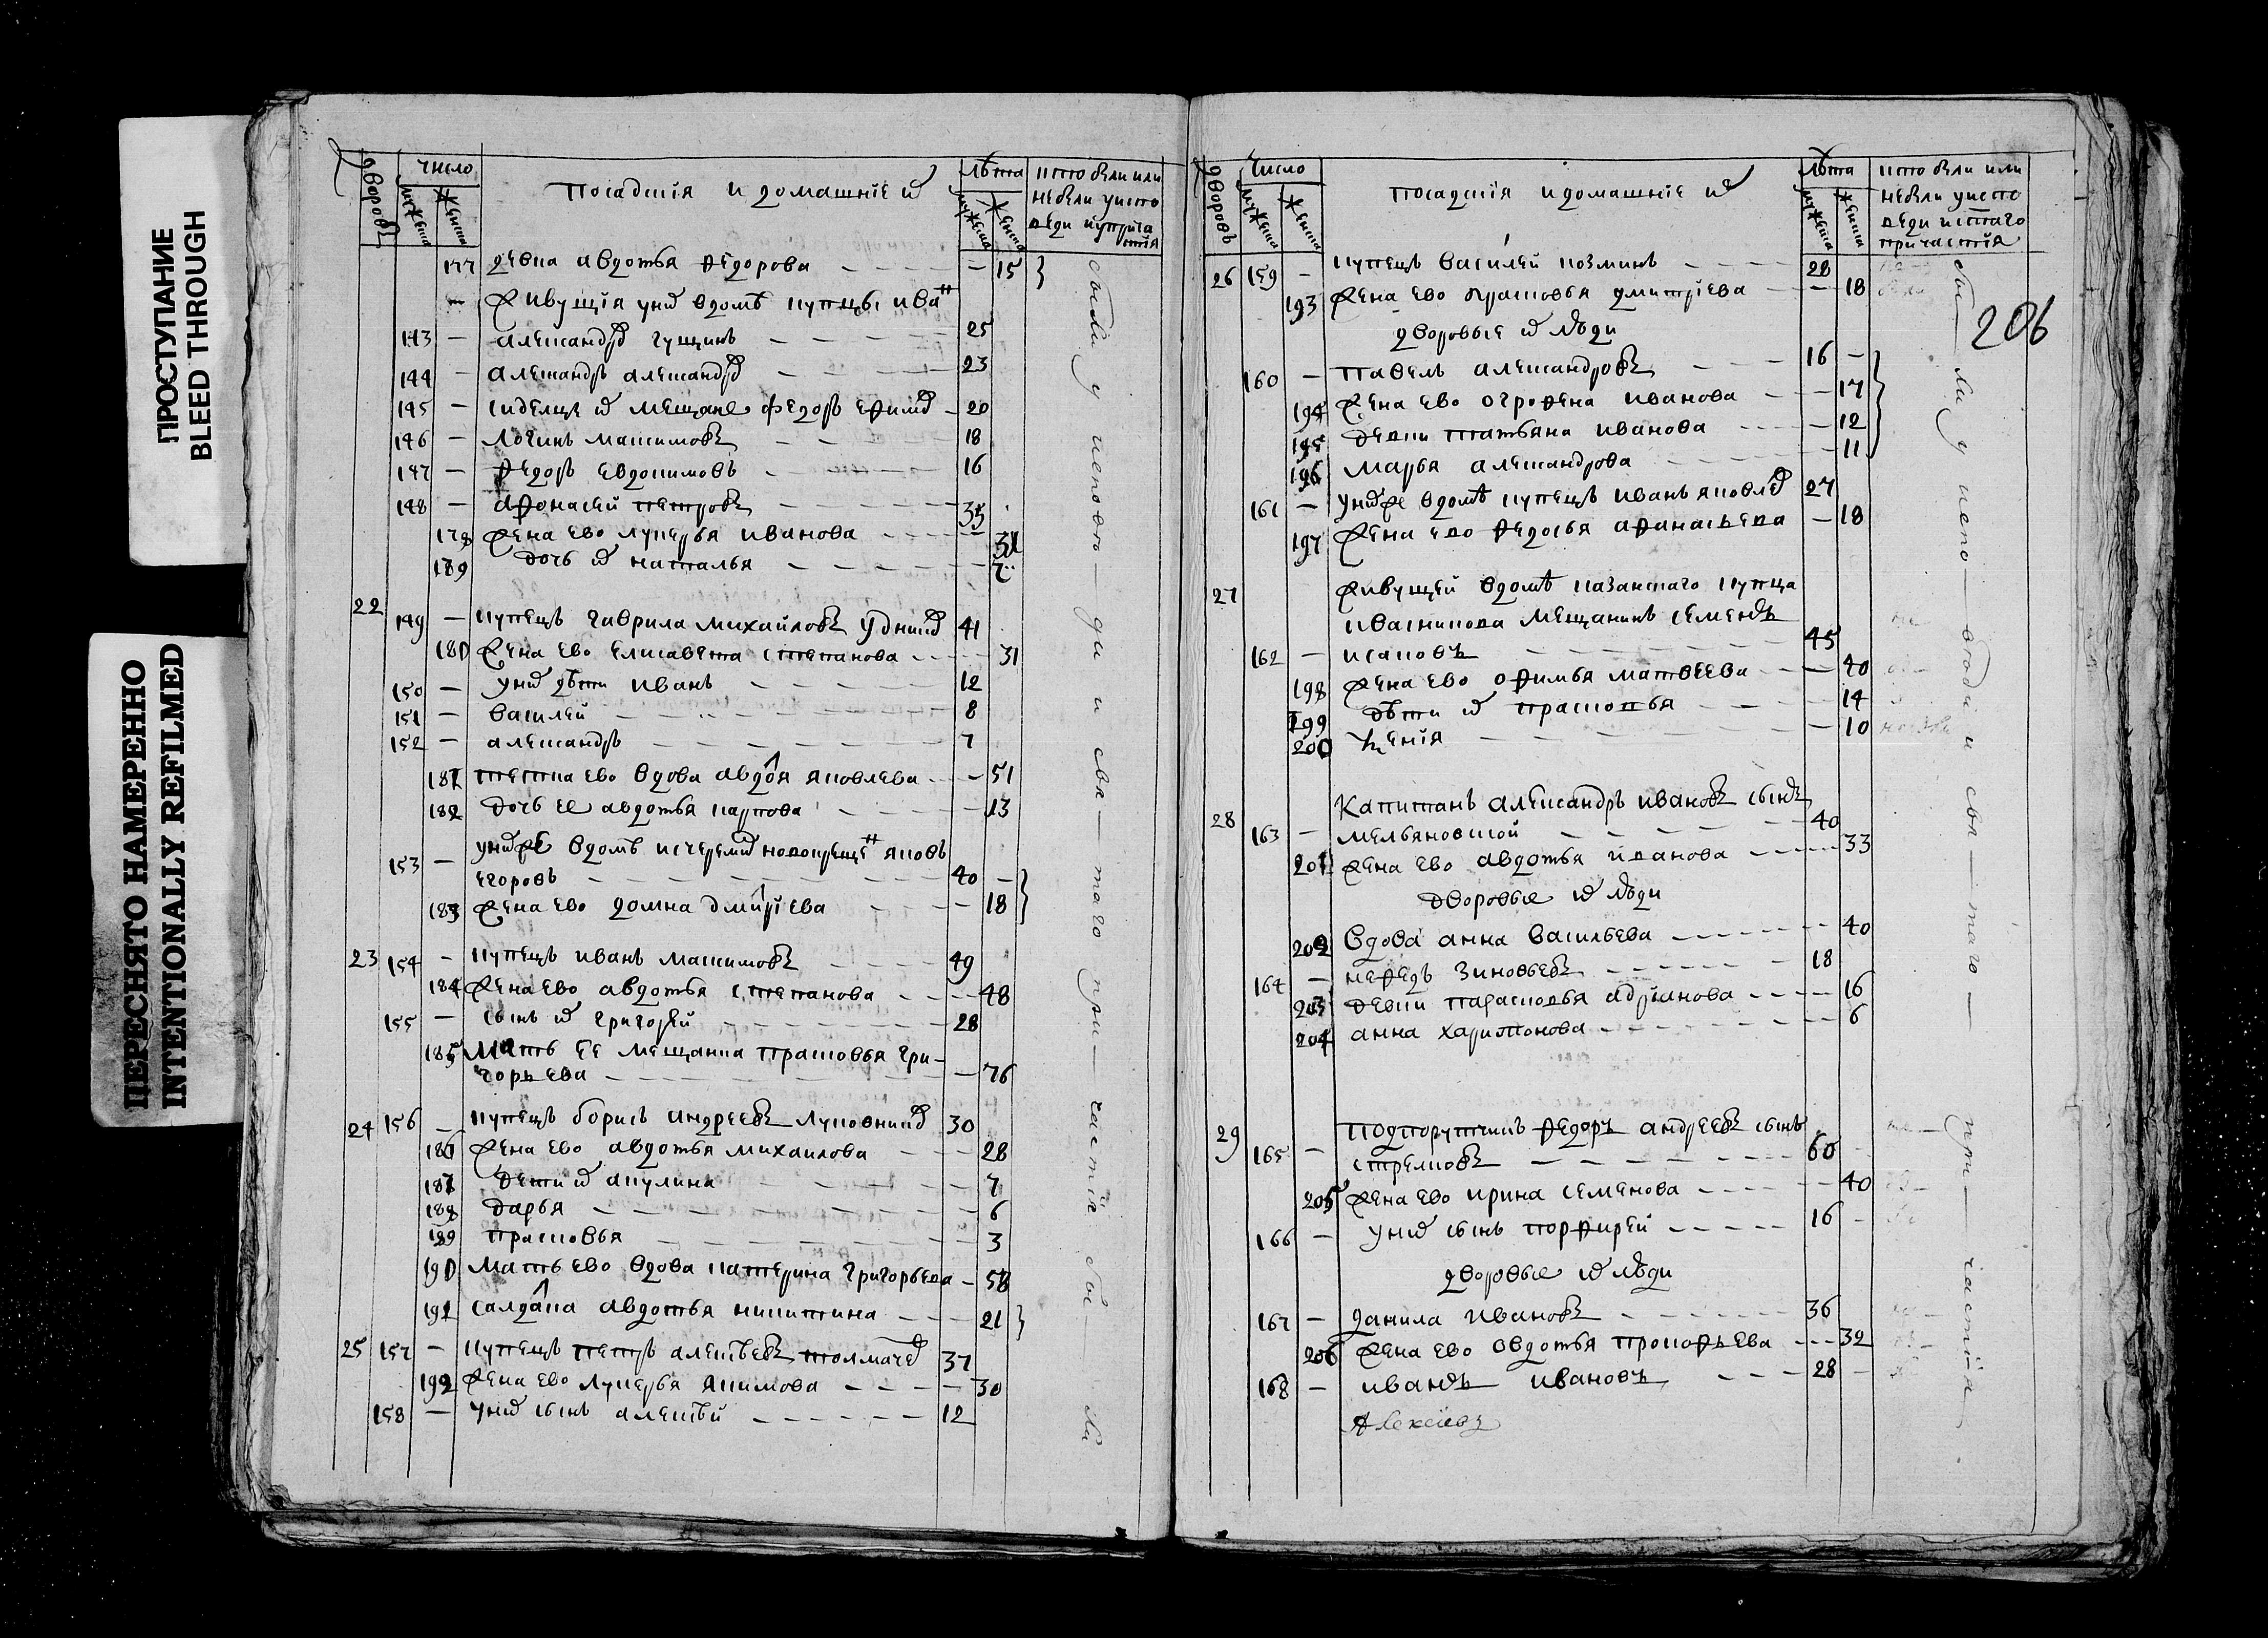 ПРОСТУПАНИЕ
BLEED THROUGH
ПЕРЕСНЯТО НАМЕРЕННО
INTENTIONALLY REFILMED
дворовъ
число
мужеска
женска
посадскiя и домашнiе их
лѣта
мужеска
женска
кто были или
небыли уиспо
веди
177 девка авдотья федорова 15
живущiя уних вдомѣ купцы ива
143 александр гущинъ 25
144 александръ александр 23
145 сиделцы их мещане федоръ ефим 20
146 логинъ максимовъ 18
147 федоръ евдокимовъ 16
148 афонасей петровъ 35
178 жена ево лукерья иванова
179 дочь их наталья
22 149 купецъ гаврила михайловъ 41
180 жена ево елисавета степанова 31
150 уних дѣти иванъ 12
151 василей 8
152 александръ 7
181 тетка ево вдова авдотя яковлева 51
182 дочь ее авдотья карпова 13
153 унихже вдомѣ новокрещен яковъ
егоровъ 40
183 жена ево домна дмитрiева 18
23 154 купецъ иванъ максимовъ 49
184 жена ево авдотья степанова 48
155 сынъ их григорей 28
185 мать ее мещанка прасковья гри-
горьева 76
24 156 купецъ борисъ андреевъ луковник 30
186 жена ево авдотья михаилова 28
187 дети их акулина 7
188 дарья 6
189 прасковья 3
190 мать ево вдова катерина григорьева 58
191 салдатка авдотья никитина 21
25 157 купецъ петръ алексѣевъ толмаче 37
192 жена ево лукерья якимова 30
158 уних сынъ алексѣй 12
были у исповѣ — ди и свя — таго при — частiя бы — ли
дворовъ
число
мужеска
женска
посадскiя и домашнiе их
лѣта
мужеска
женска
кто были или
небыли уиспо
веди истаго
причастiя
206
26 159 купецъ василей козминъ 28
193 жена ево прасковья дмитрiева 18
дворовые их люди
160 павелъ александровъ 16
194 жена ево огрофена иванова 17
195 девки татьяна иванова 12
196 марья александрова 11
161 унихже вдомѣ купецъ иванъ яковле 27
197 жена ево федосья афанасьева 18
27 живущей вдомѣ казанскаго купца
ивасникова мещанинъ семенъ
162 исаковъ 45
198 жена ево офимья матвеева 40
199 дѣти их прасковья 14
200 ксенiя 10
28 Капитанъ александръ ивановъ сынъ
163 мельяновской 40
201 жена ево авдотья иванова 33
дворовые их люди
202 вдова анна васильева 40
164 нефедъ зиновьевъ 18
203 девки парасковья адрианова 16
204 анна харитонова 6
29 подпорутчикъ федоръ андреевъ сынъ
165 стрелковъ 60
205 жена ево ирина семенова 40
166 уних сынъ порфирей 16
дворовые их люди
167 данила ивановъ 36
206 жена ево овдотья прокофьева 32
168 иванъ ивановъ 28
Алексiевъ
бы — ли у испо — вѣди и свя — таго — при — частiя